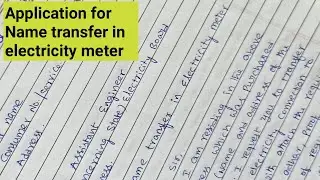 Application for
Name transfer in
electricity meter
name
Consumer No/service
Address.
Assistant Engineer
state) Electricity Board
name transfer in electricity meter
Sir,
I am residing in the above
which was purchased
(name and address of the
I request you to transfer
electricity connection to
attach the
proof
of